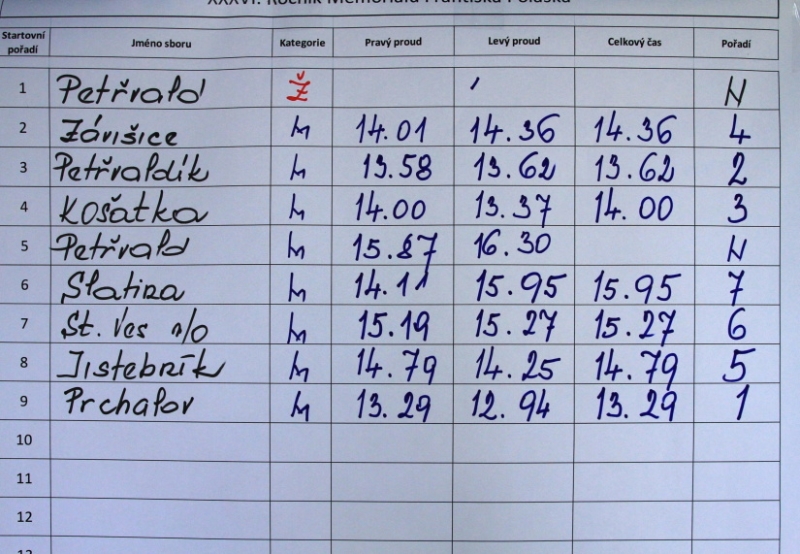 XXXVI. Ročník Memoriálu Františka Poláška
Startovní pořadí Jméno sboru Kategorie Pravý proud Levý proud Celkový čas Pořadí
1 Petřvald Ž N
2 Závišice M 14.01 14.36 14.36 4
3 Petřvaldík M 13.58 13.62 13.62 2
4 Košatka M 14.00 13.37 14.00 3
5 Petřvald M 15.87 16.30 N
6 Slatina M 14.11 15.95 15.95 7
7 St. Ves n/O M 15.19 15.27 15.27 6
8 Jistebník M 14.79 14.25 14.79 5
9 Prchalov M 13.29 12.94 13.29 1
10
11
12
13